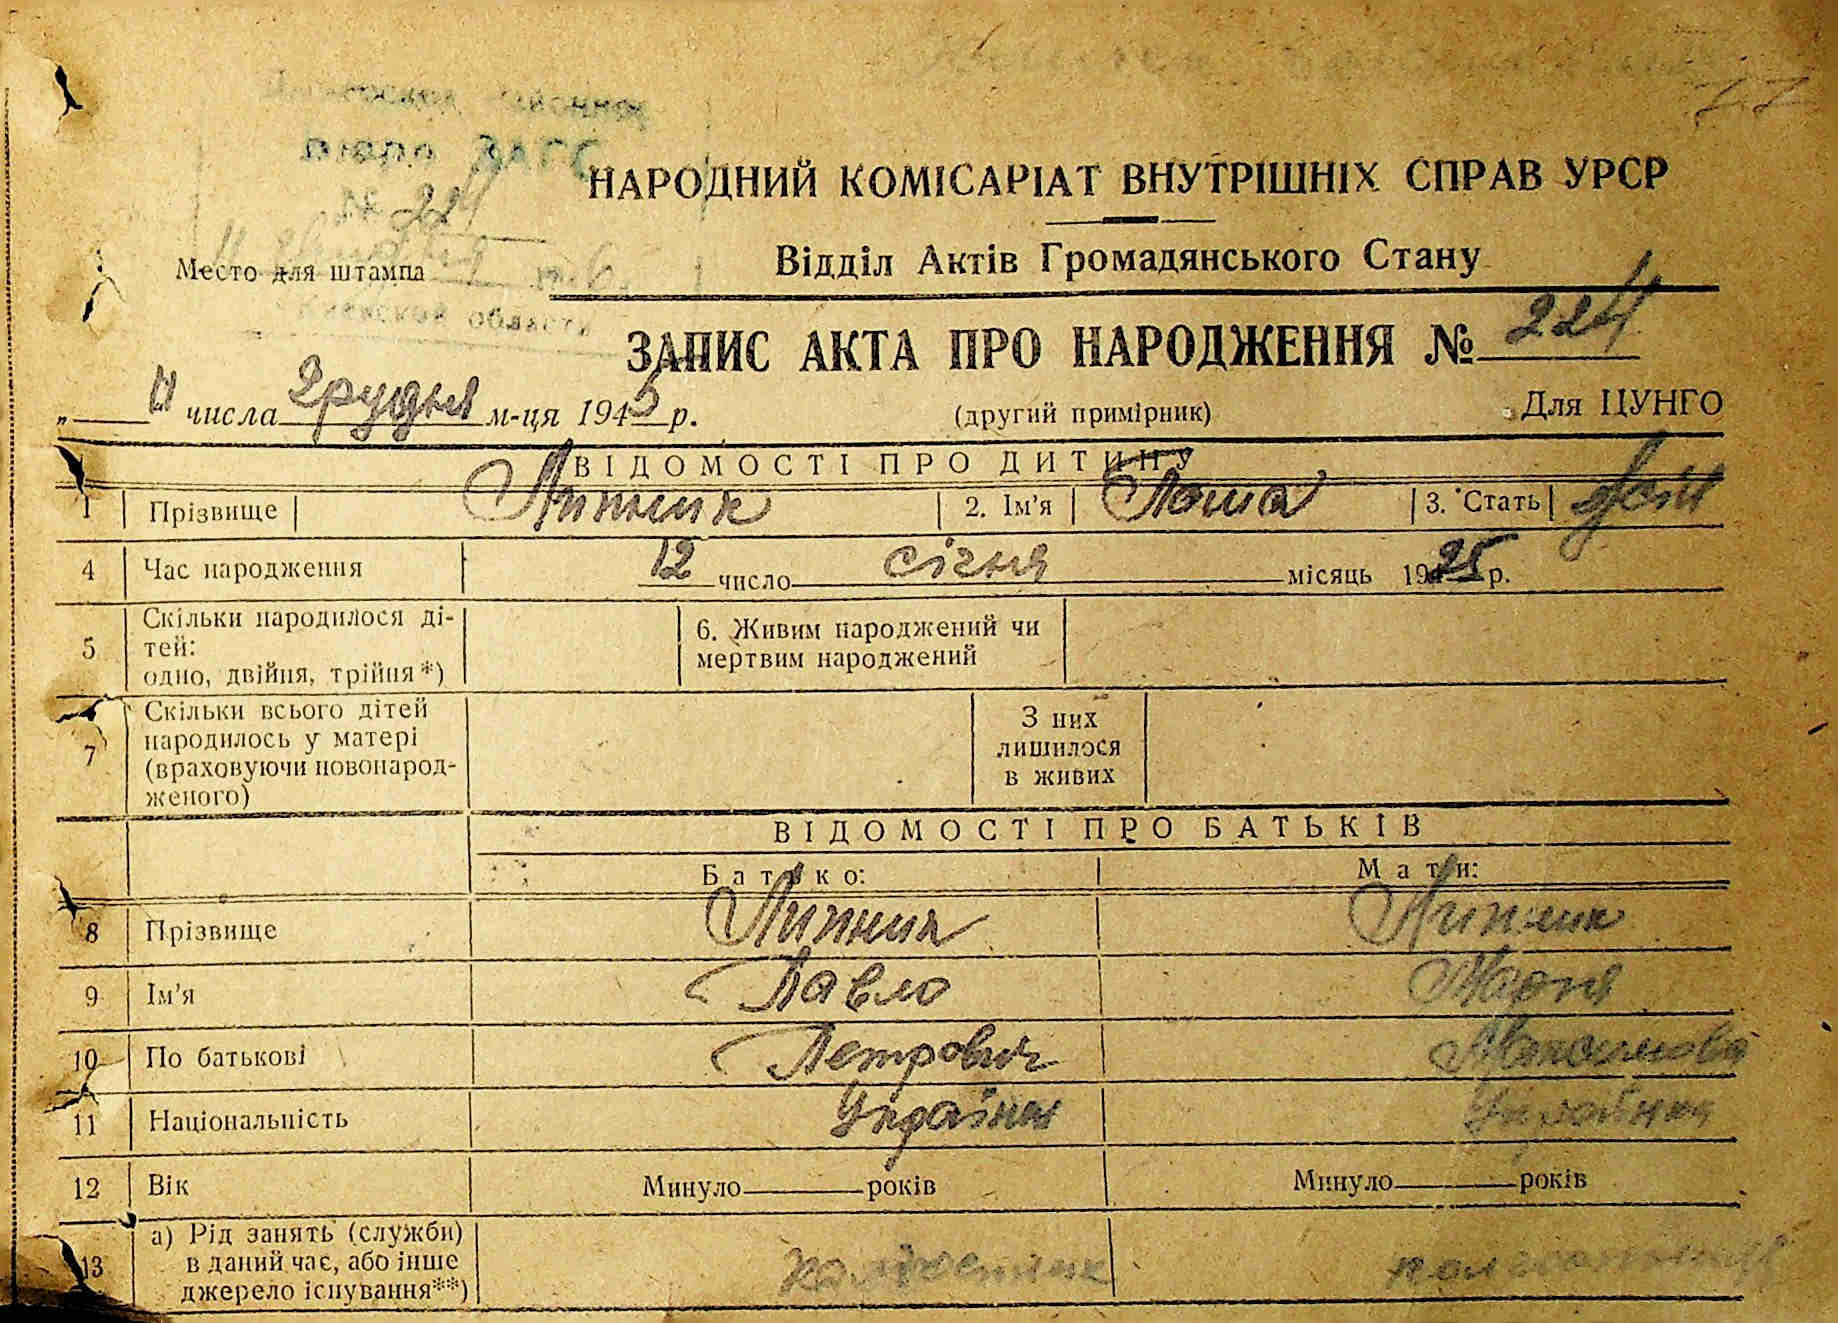 відділ ЗАГС
№ 224
Место для штампа
Киевской области
НАРОДНИЙ КОМІСАРІАТ ВНУТРІШНІХ СПРАВ УРСР
Відділ Актів Громадянського Стану
ЗАПИС АКТА ПРО НАРОДЖЕННЯ № 224
„ 11 числа Грудня м-ця 1945 р. (другий примірник) Для ЦУНГО
ВІДОМОСТІ ПРО ДИТИНУ
1 Прізвище Липник 2. Ім'я 3. Стать
4 Час народження 12 число січня місяць 1925 р.
5 Скільки народилося ді-
тей:
одно, двійня, трійня*)
6. Живим народжений чи
мертвим народжений
7 Скільки всього дітей
народилось у матері
(враховуючи новонарод-
женого)
З них
лишилося
в живих
ВІДОМОСТІ ПРО БАТЬКІВ
Батько: Мати:
8 Прізвище Липник Липник
9 Ім'я Павло Марія
10 По батькові Петрович Максимовна
11 Національність Українец Українка
12 Вік Минуло років Минуло років
13 а) Рід занять (служби)
в даний час, або інше
джерело існування**)
колгоспник колгоспниця